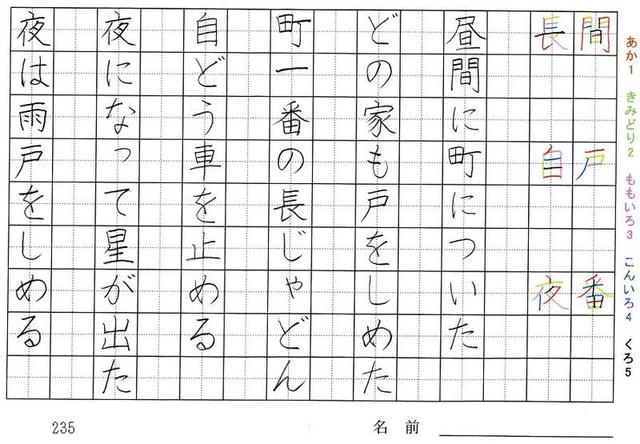 あか1 きみどり2 ももいろ3 こんいろ4 くろ5
間 戸 番
長 自 夜
昼間に町についた
どの家も戸をしめた
町一番の長じゃどん
自どう車を止める
夜になって星が出た
夜は雨戸をしめる
235
名前